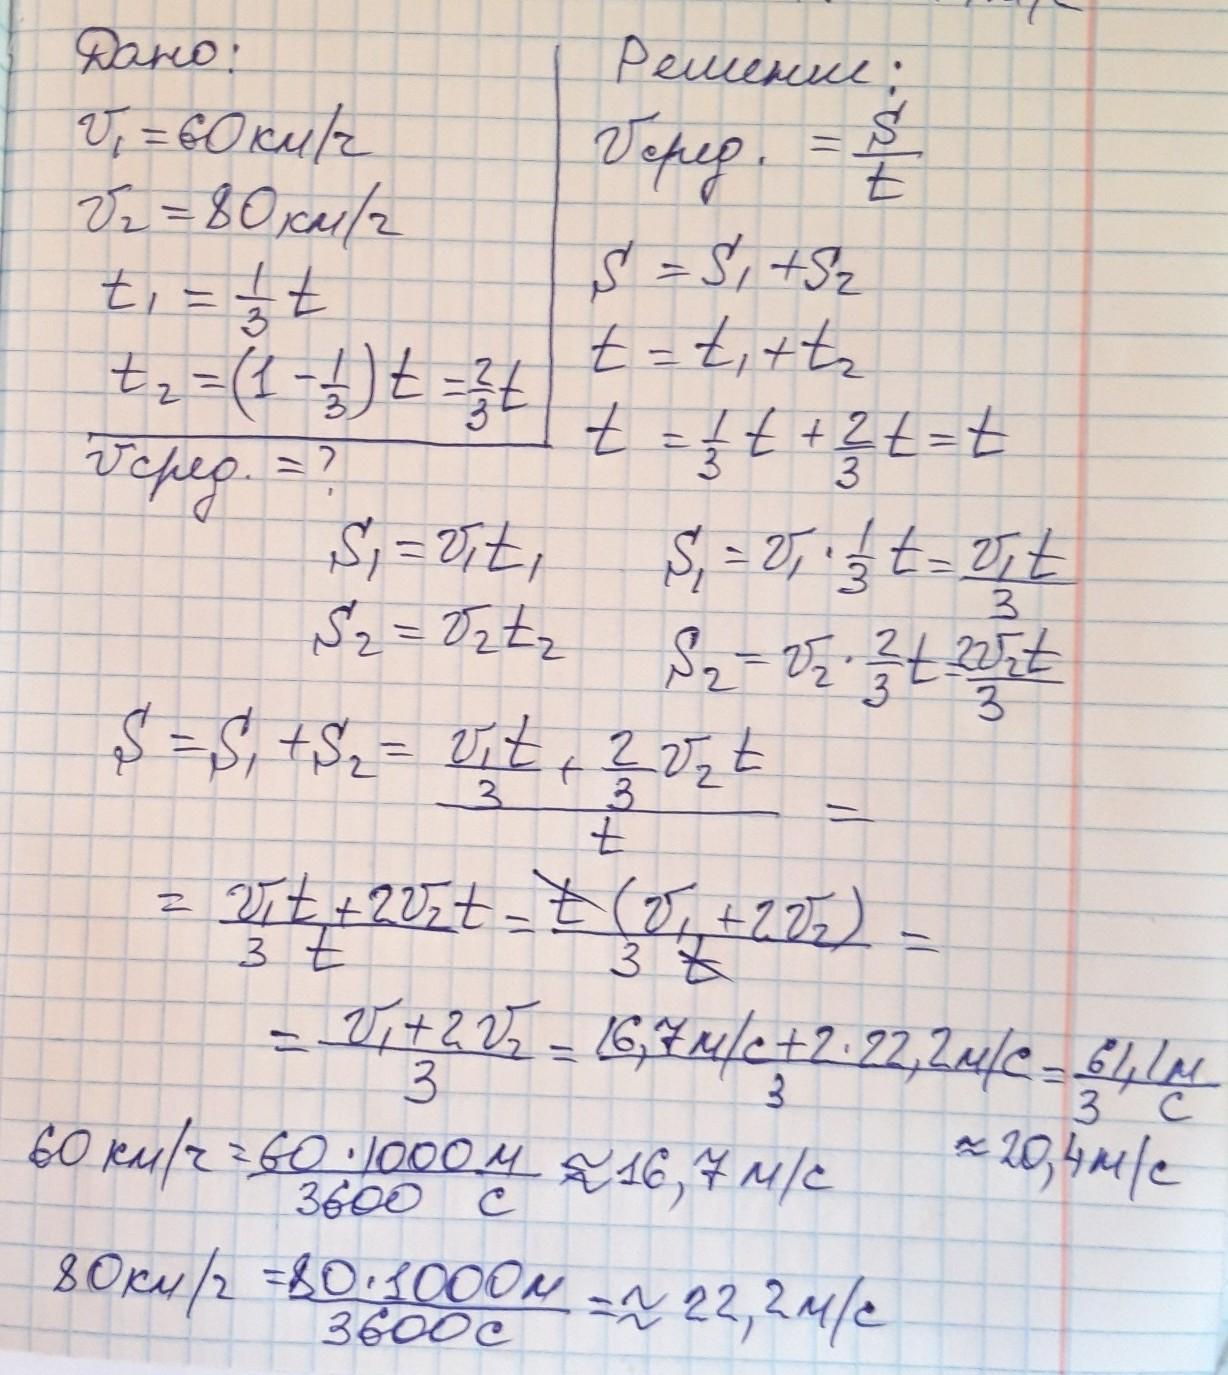 Дано:
v₁ = 60 км/ч
v₂ = 80 км/ч
t₁ = 1/3 t
t₂ = (1 - 1/3) t = 2/3 t
vсред. = ?
Решение:
vсред. = S/t
S = S₁ + S₂
t = t₁ + t₂
t = 1/3 t + 2/3 t = t
S₁ = v₁t₁ S₁ = v₁ · 1/3 t = v₁t/3
S₂ = v₂t₂ S₂ = v₂ · 2/3 t = 2v₂t/3
S = S₁ + S₂ = (v₁t/3 + 2/3 v₂t)/t =
= (v₁t + 2v₂t)/(3 t) = t(v₁ + 2v₂)/(3 t) =
= (v₁ + 2v₂)/3 = (16,7 м/с + 2 · 22,2 м/с)/3 = 61,1 м/3 с
≈ 20,4 м/с
60 км/ч = 60 · 1000 м/3600 с ≈ 16,7 м/с
80 км/ч = 80 · 1000 м/3600 с = ≈ 22,2 м/с